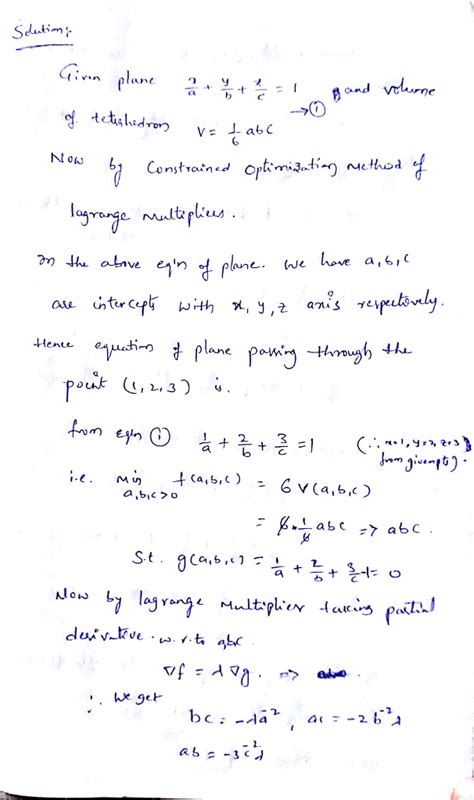 Solution:-
Given plane x/a + y/b + z/c = 1 →① and volume
of tetrahedron V = 1/6 abc
Now by Constrained Optimization Method of
lagrange Multipliers.
In the above eq'n of plane. we have a, b, c
are intercepts with x, y, z axis respectively.
Hence equation of plane passing through the
point (1, 2, 3) is.
from eqn ① 1/a + 2/b + 3/c = 1 (∵ x=1, y=2, z=3 from given pt).
i.e. min a,b,c>0 f(a,b,c) = 6 V(a,b,c)
= 6 * 1/6 abc => abc.
S.t. g(a,b,c) = 1/a + 2/b + 3/c - 1 = 0
Now by lagrange Multiplier taking partial
derivative. w.r.to abc.
∇f = λ∇g. =>
∴ we get
bc = -λa⁻², ac = -2b⁻²λ
ab = -3c⁻²λ